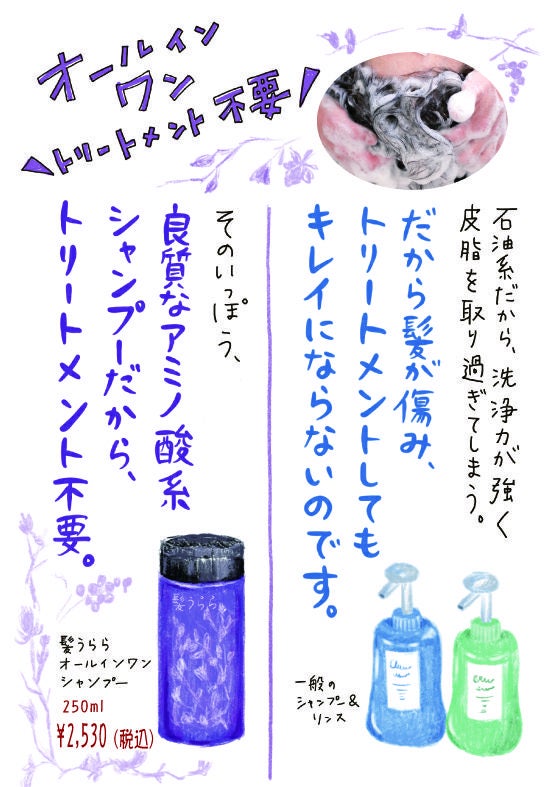 オールイン
ワン
トリートメント不要！
石油系だから、洗浄力が強く
皮脂を取り過ぎてしまう。
だから髪が傷み、
トリートメントしても
キレイにならないのです。
一般の
シャンプー&
リンス
そのいっぽう、
良質なアミノ酸系
シャンプーだから、
トリートメント不要。
髪うらら
髪うらら
オールインワン
シャンプー
250ml
¥2,530(税込)